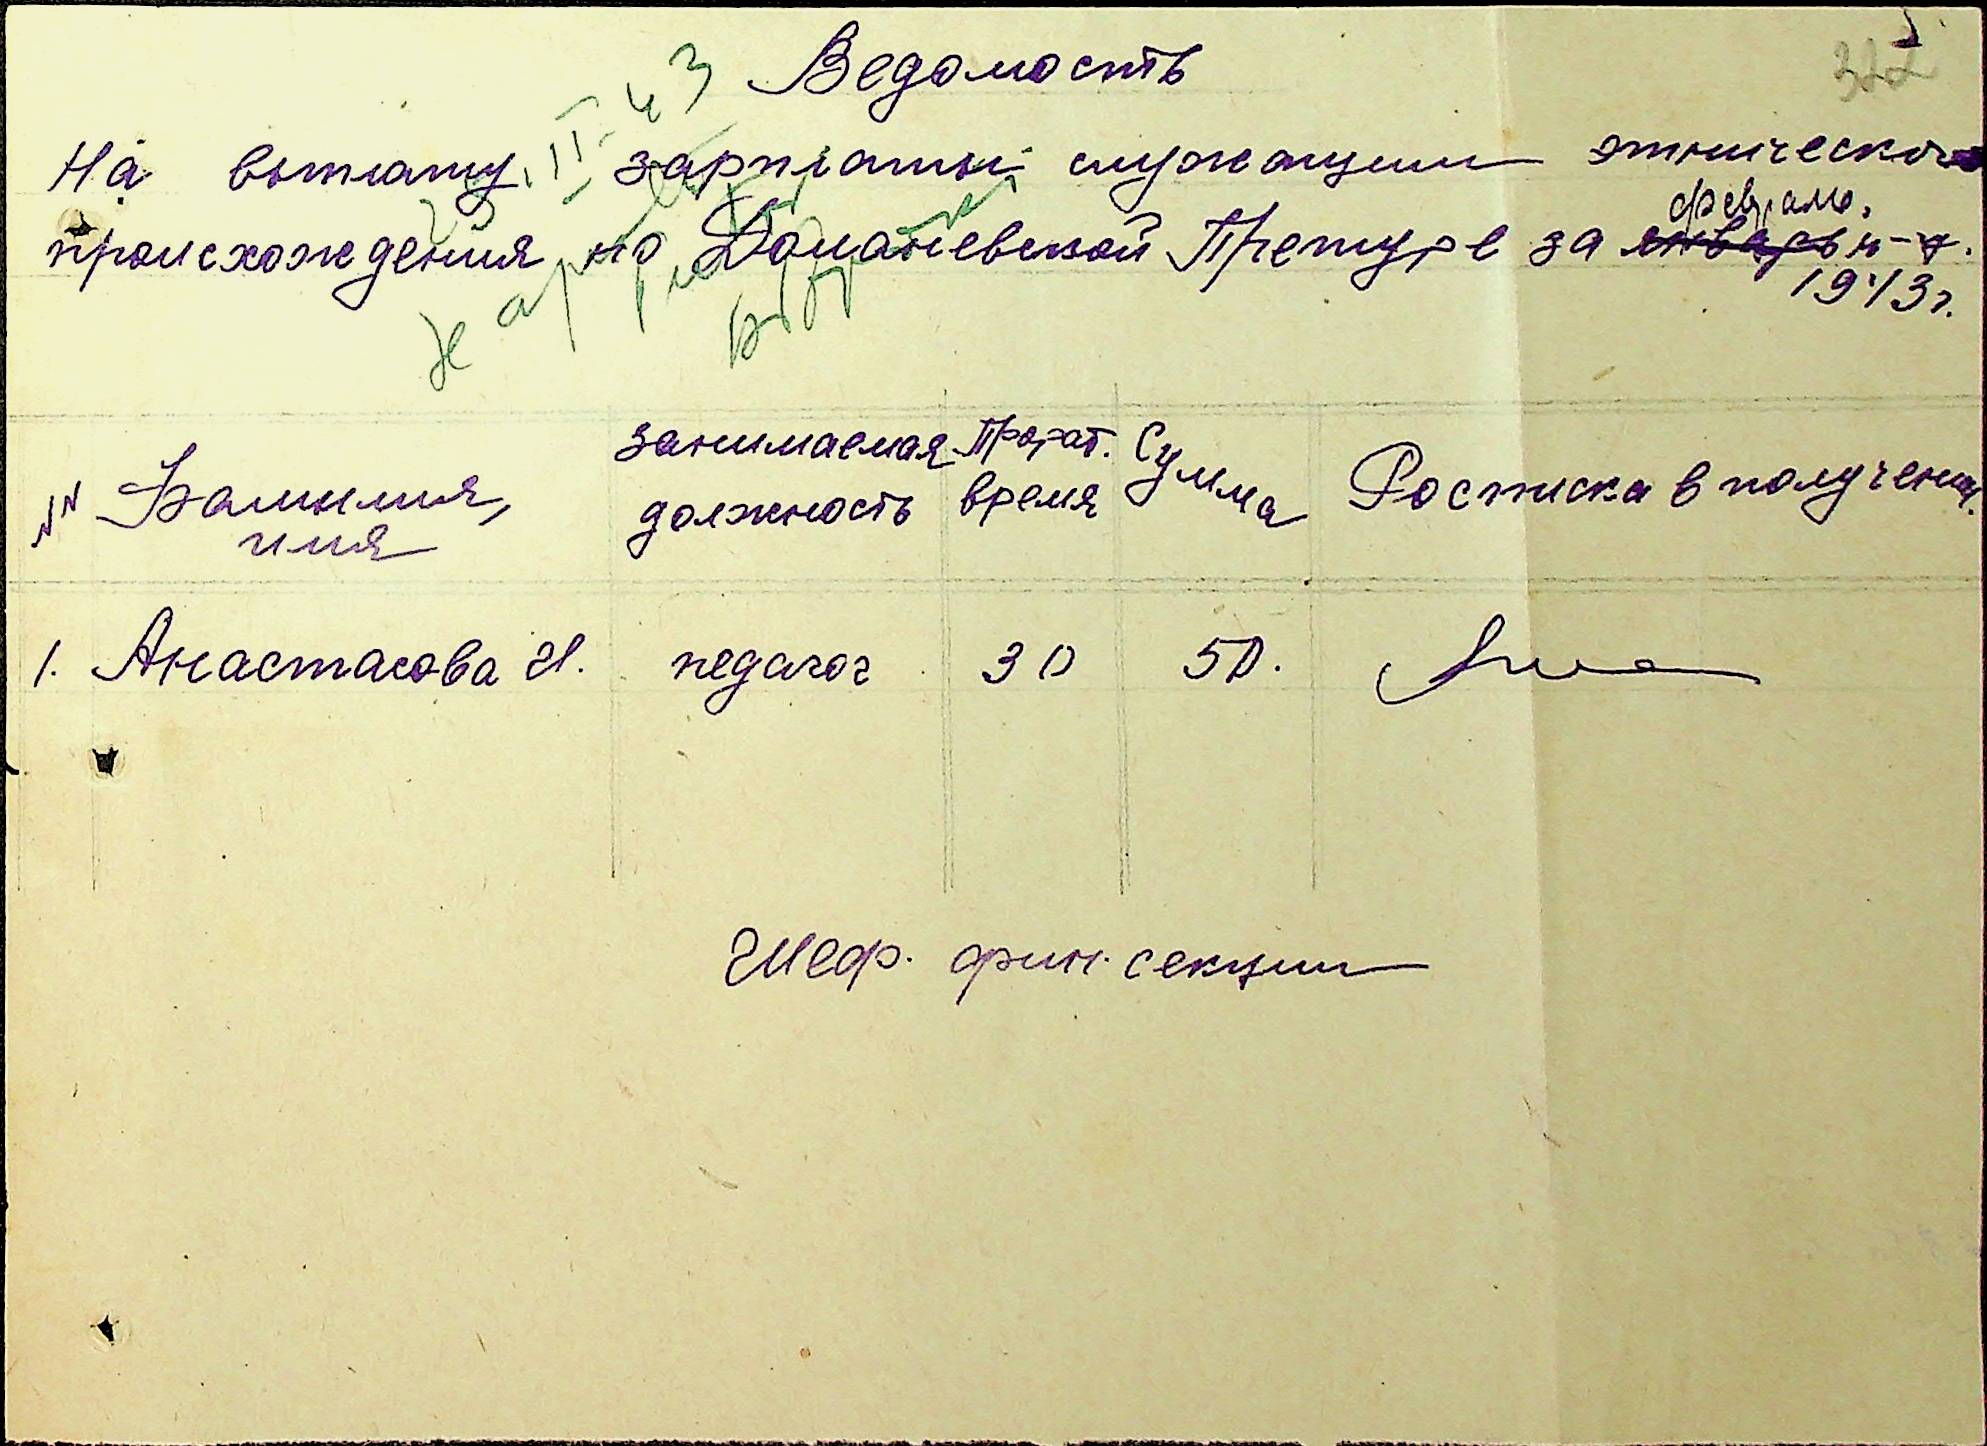 322
Ведомость
На выплату зарплаты служащим этнического
происхождения по Доманевской Претуре за ~~январь~~ февраль, м-ц.
1943 г.
NN Фамилия, имя
занимаемая должность
Прораб. время
Сумма
Росписка в получении.
1. Анастасова И. педагог 30 50.
Шеф. фин. секции